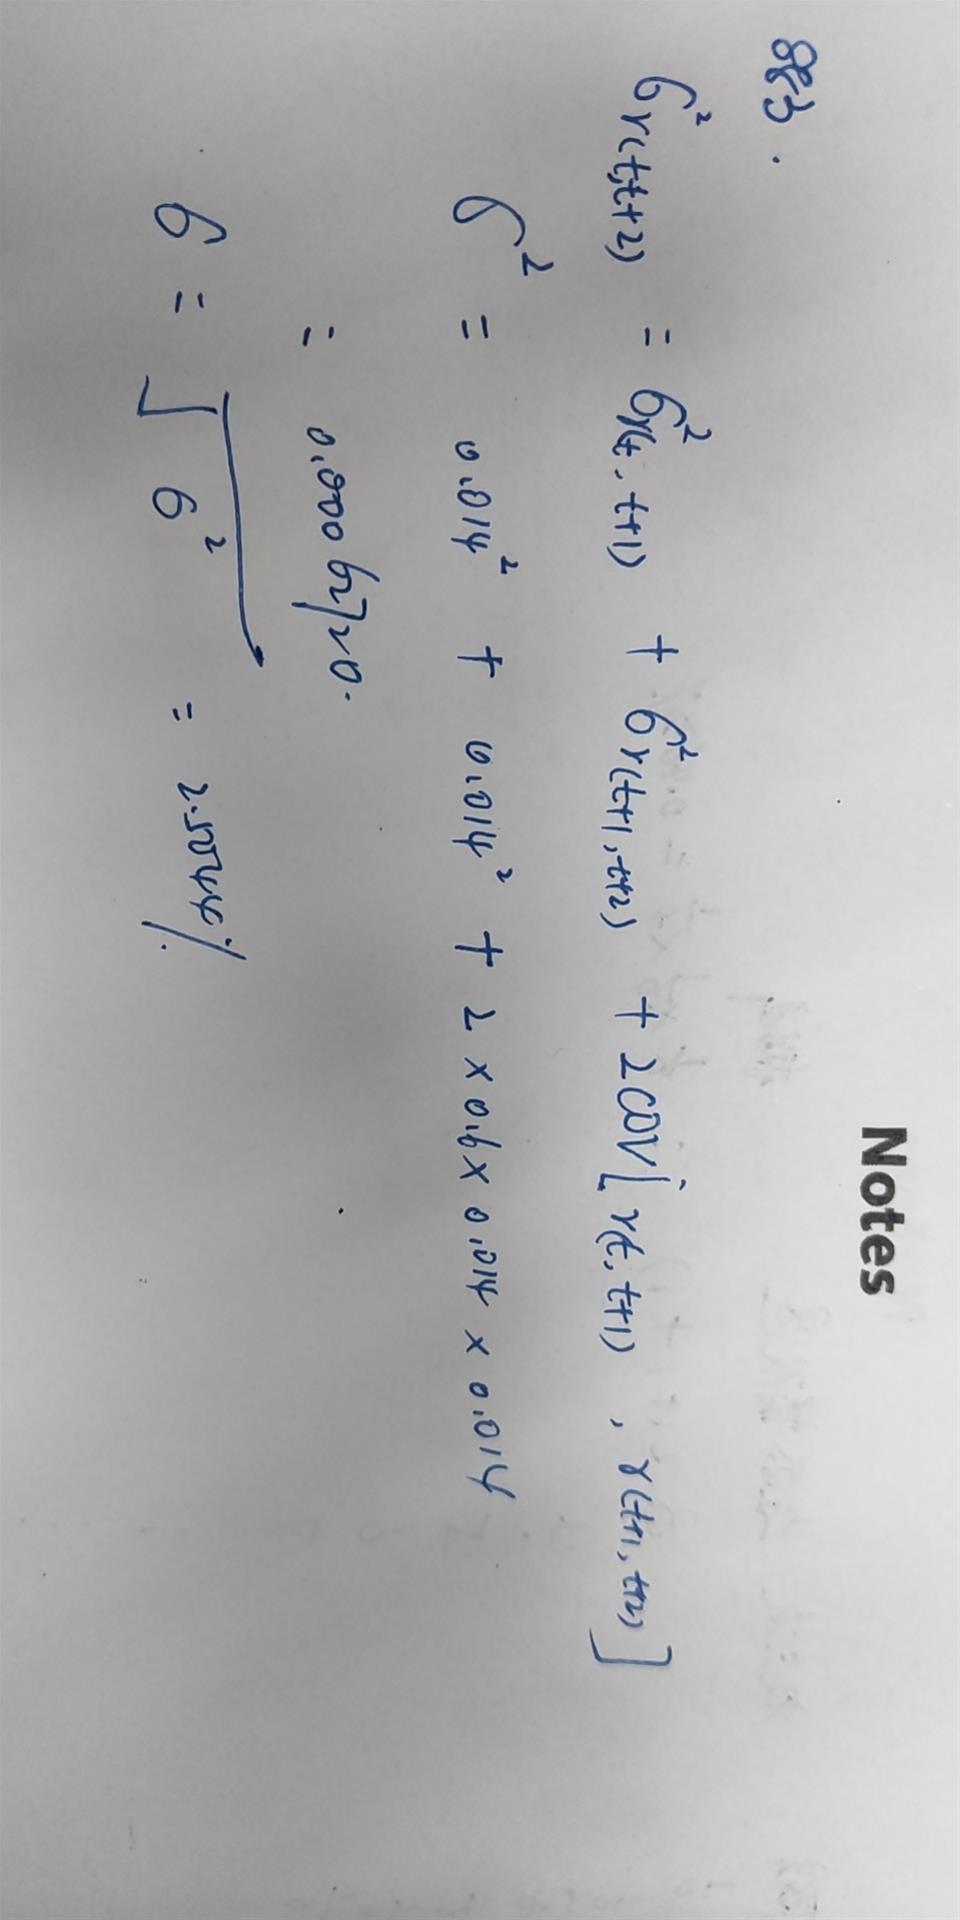 Notes
883.
σ²r(t,t+2) = σ²r(t,t+1) + σ²r(t+1,t+2) + 2cov[r(t,t+1), r(t+1,t+2)]
σ² = 0.014² + 0.014² + 2 × 0.6 × 0.014 × 0.014
= 0.00062720.
σ = √σ² = 2.5044%